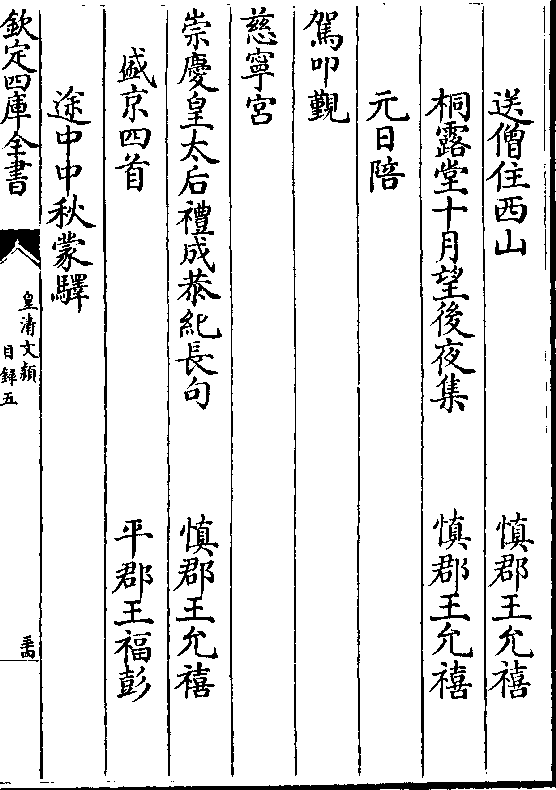 送僧住西山 慎郡王允禧
桐露堂十月望後夜集 慎郡王允禧
元日陪
駕叩覲
慈寧宮
崇慶皇太后禮成恭紀長句 慎郡王允禧
盛京四首 平郡王福彭
途中中秋蒙驛
欽定四庫全書
皇清文穎
目録五